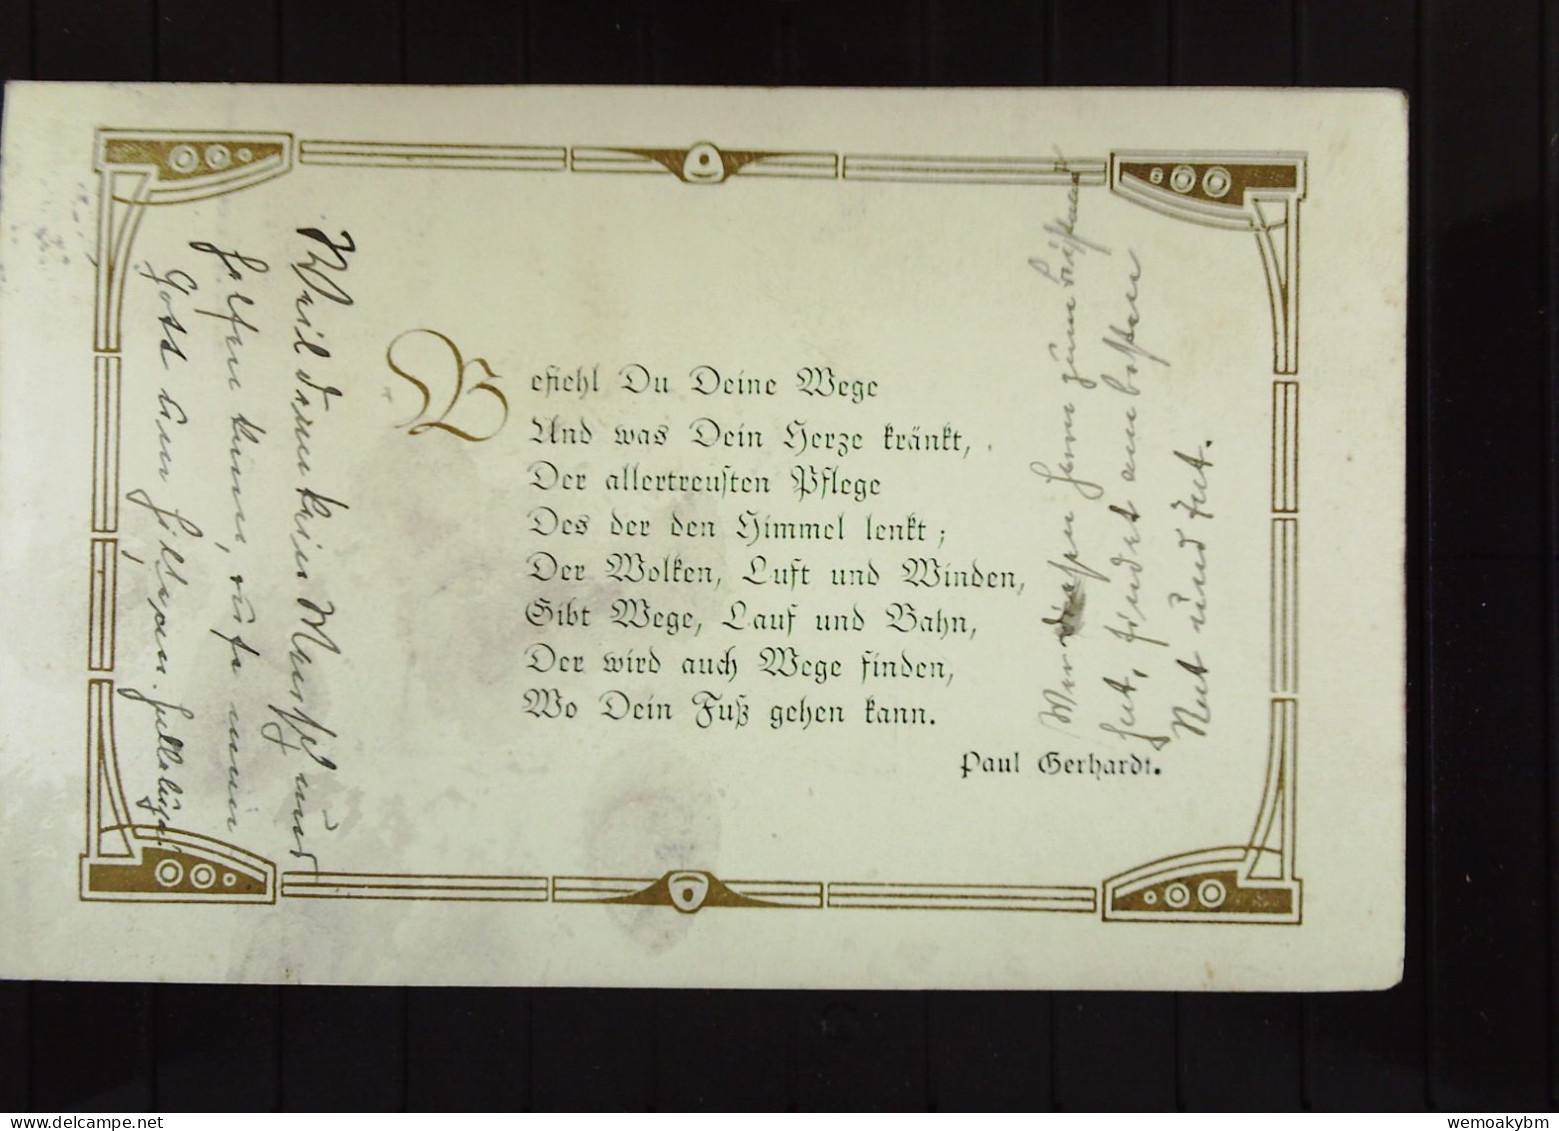 Befiehl Du Deine Wege
Und was Dein Herze kränkt,
Der allertreusten Pflege
Des der den Himmel lenkt;
Der Wolken, Luft und Winden,
Gibt Wege, Lauf und Bahn,
Der wird auch Wege finden,
Wo Dein Fuß gehen kann.
Paul Gerhardt.
Weil denn kein Mensch uns
helfen kann, rufe man
Gott um Hilfe an.
Wer diesen Herrn zum
hat, findet am besten
Rat und Tat.
www.delcampe.net
wemoakybm